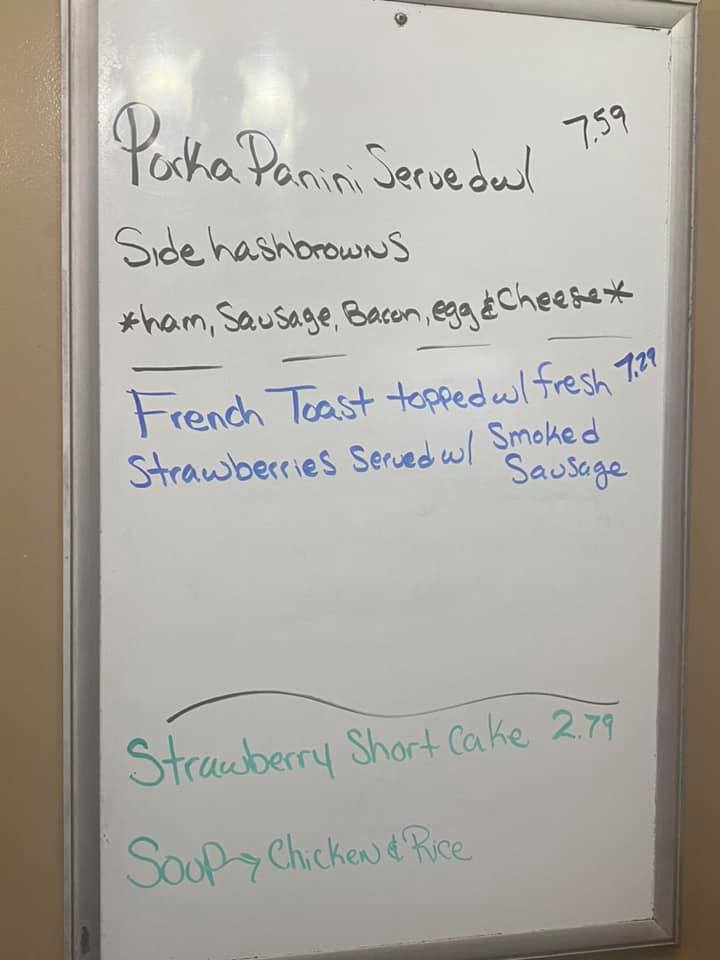 Porka Panini Served w/ 7.59
Side hashbrowns
*ham, Sausage, Bacon, egg & Cheese*
French Toast topped w/ fresh 7.29
Strawberries Served w/ Smoked
Sausage
Strawberry Short Cake 2.79
Soup → Chicken & Rice